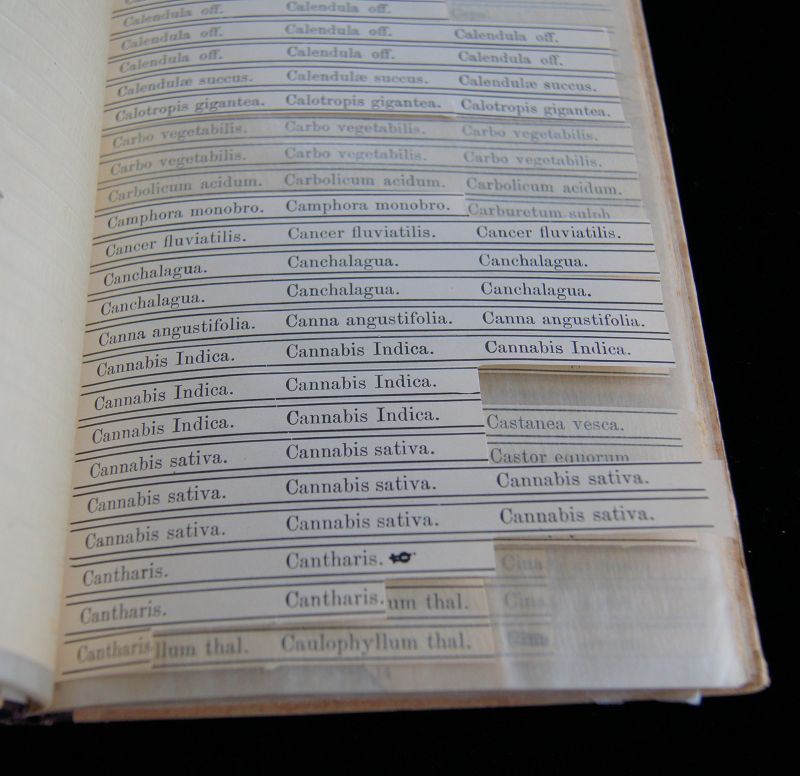 Calendula off. Calendula off.
Calendula off. Calendula off. Calendula off.
Calendula off. Calendula off. Calendula off.
Calendulæ succus. Calendulæ succus. Calendulæ succus.
Calotropis gigantea. Calotropis gigantea. Calotropis gigantea.
Carbo vegetabilis. Carbo vegetabilis. Carbo vegetabilis.
Carbo vegetabilis. Carbo vegetabilis. Carbo vegetabilis.
Carbolicum acidum. Carbolicum acidum. Carbolicum acidum.
Camphora monobro. Camphora monobro. Carburetum sulph
Cancer fluviatilis. Cancer fluviatilis. Cancer fluviatilis.
Canchalagua. Canchalagua. Canchalagua.
Canchalagua. Canchalagua. Canchalagua.
Canna angustifolia. Canna angustifolia. Canna angustifolia.
Cannabis Indica. Cannabis Indica. Cannabis Indica.
Cannabis Indica. Cannabis Indica.
Cannabis Indica. Cannabis Indica. Castanea vesca.
Cannabis sativa. Cannabis sativa. Castor equorum
Cannabis sativa. Cannabis sativa. Cannabis sativa.
Cannabis sativa. Cannabis sativa. Cannabis sativa.
Cantharis. Cantharis. Cina
Cantharis. Cantharis. um thal. Cina
Cantharis llum thal. Caulophyllum thal. Cina